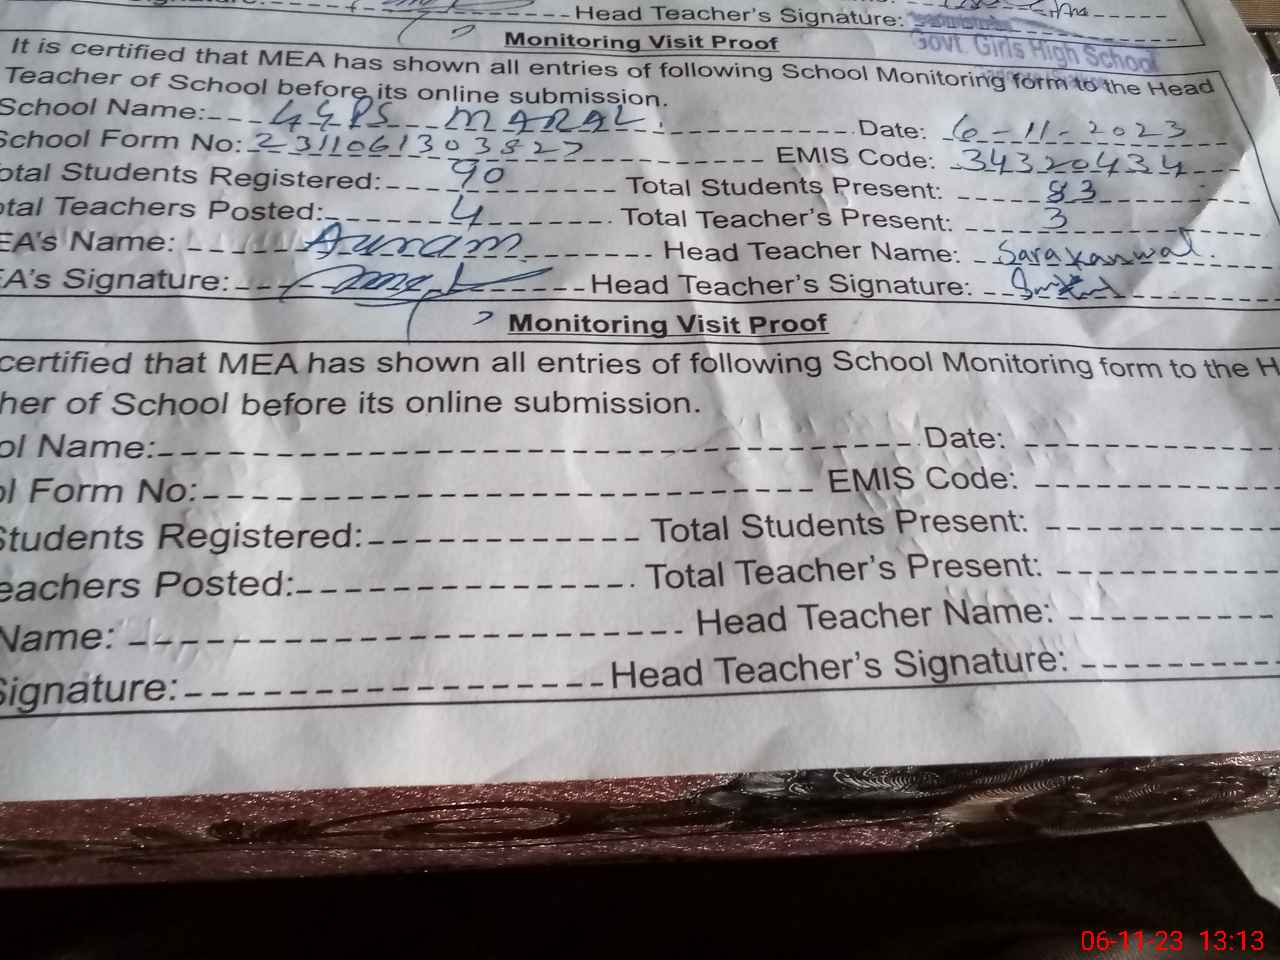 Head Teacher's Signature:
Govt. Girls High School
Monitoring Visit Proof
It is certified that MEA has shown all entries of following School Monitoring form to the Head
Teacher of School before its online submission.
School Name: GGPS MARAL Date: 6-11-2023
School Form No: 2311061303827 EMIS Code: 34320434
otal Students Registered: 90 Total Students Present: 83
otal Teachers Posted: 4 Total Teacher's Present: 3
EA's Name: Head Teacher Name: Sara Kanwal
EA's Signature: Head Teacher's Signature:
Monitoring Visit Proof
certified that MEA has shown all entries of following School Monitoring form to the H
her of School before its online submission.
ol Name: Date:
ol Form No: EMIS Code:
Students Registered: Total Students Present:
eachers Posted: Total Teacher's Present:
Name: Head Teacher Name:
Signature: Head Teacher's Signature:
06-11-23 13:13